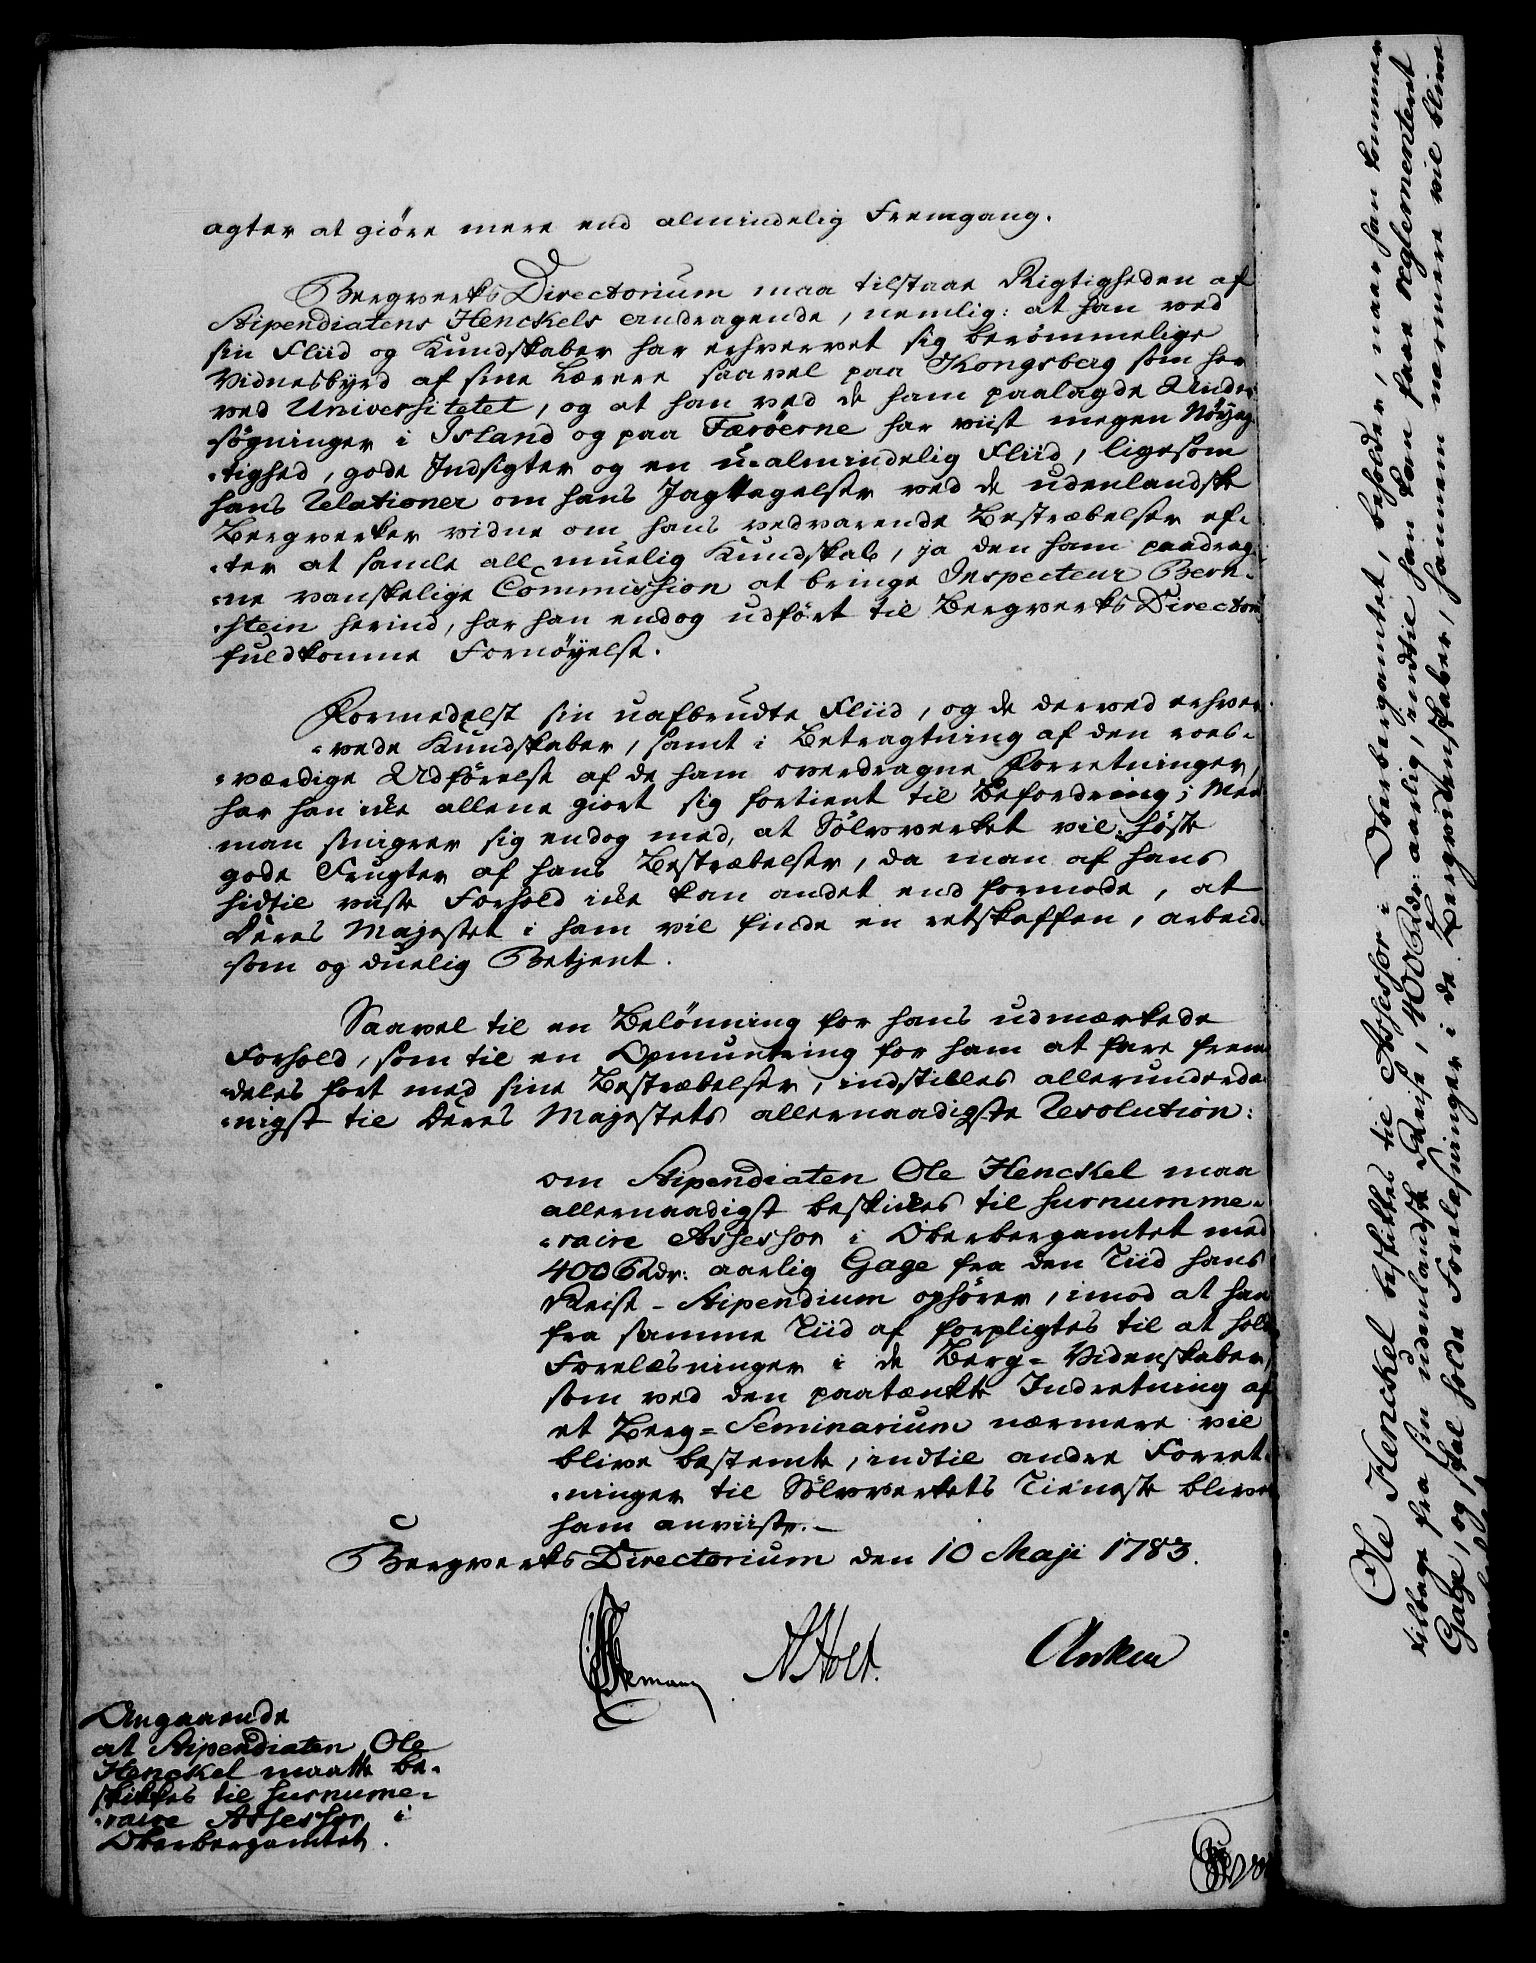 agter at giöre mere end almindelig Fremgang.
BergverksDirectorium maa tilstaae Rigtigheden af
Stipendiatens Henckels Andragende, nemlig: at han ved
sin Fliid og Kundskaber har erhvervet sig berömmelige
Vidnesbyrd af sine Lærere saavel paa Kongsberg som her
ved Universitetet, og at han ved de ham paalagde Under
sögninger i Island og paa Færöerne har viist megen Nöyag
-tighed, gode Indsigter og en u-almindelig Fliid, ligesom
hans Relationer om hans Jagttagelser ved de udenlandske
Bergverker vidne om hans vedvarende Bestræbelser ef-
-ter at samle all muelig Kundskab, ja den ham paadrag-
-ne vanskelige Commission at bringe Inspecteur Bern-
-stein herind, har han endog udfört til BergverksDirectorii
fuldkomne Fornöyelse.
Formedelst sin uafbrudte Fliid, og de derved erhver
-vede Kundskaber, samt i Betragtning af den roes-
-værdige Udförelse af de ham overdragne Forretninger,
har han ikke allene giort sig fortient til Befordring; Men
man smigrer sig endog med, at Sölvverket vil höste
gode Frugter af hans Bestræbelser, da man af hans
hidtil viiste Forhold ikke kan andet end formode, at
Deres Majestet i ham vil finde en retskaffen, arbeid-
som og duelig Betjent.
Saavel til en Belönning for hans udmærkede
Forhold, som til en Opmuntring for ham at fare frem
-deles fort med sine Bestræbelser, indstilles allerunderda-
-nigst til Deres Majestets allernaadigste Resolution:
om Stipendiaten Ole Henckel maa
allernaadigst beskikkes til surnumme-
-raire Assessor i Oberbergamtet med
400 Rdr: aarlig Gage fra den Tiid hans
Reise-Stipendium ophörer, imod at han
fra samme Tiid af forpligtes til at hold
Forelæsninger i de Berg-Videnskaber,
som ved den paatænkte Indretning af
et Berg-Seminarium nærmere vil
blive bestemte, indtil andre Forret-
-ninger til Sölvverkets Tieneste blive
ham anviiste.-
BergverksDirectorium den 10 Maji 1783.
NHolt. Anker
Angaaende
at Stipendiaten Ole
Henckel maatte be-
skikkes til surnume-
-raire Assessor i
Oberbergamtet.
Ole Henckel beskikkes til Assessor i Oberbergamtet, beholder, naar han kommer
tilbage fra sin udenlandske Reise, 400 Rdr: aarlig, indtil han kan faae reglementeret
Gage, og skal holde Forelæsninger i de Bergvidenskaber, hannem nærmere vil blive